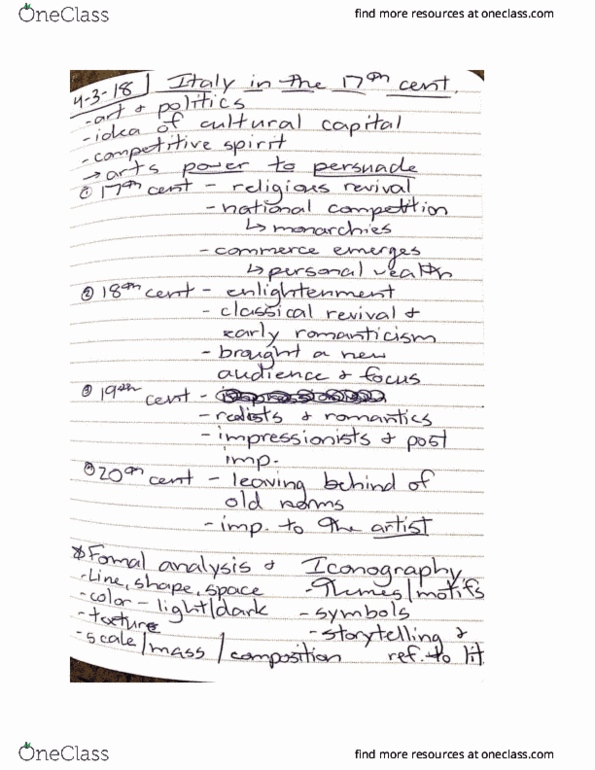 OneClass
find more resources at oneclass.com
4-3-18 Italy in the 17th cent.
-art & politics
-idea of cultural capital
-competitive spirit
→ arts power to persuade
① 17th cent - religious revival
- national competition
↳ monarchies
- commerce emerges
↳ personal wealth
② 18th cent - enlightenment
- classical revival &
early romanticism
- brought a new
audience & focus
③ 19th cent -
- realists & romantics
- impressionists & post
imp.
20th cent - leaving behind of
old norms
- imp. to the artist
Fomal analysis & Iconography
-Line, shape, space -Themes/motifs
-color - light/dark - symbols
-texture - storytelling &
-scale/mass/composition ref. to lit
OneClass
find more resources at oneclass.com